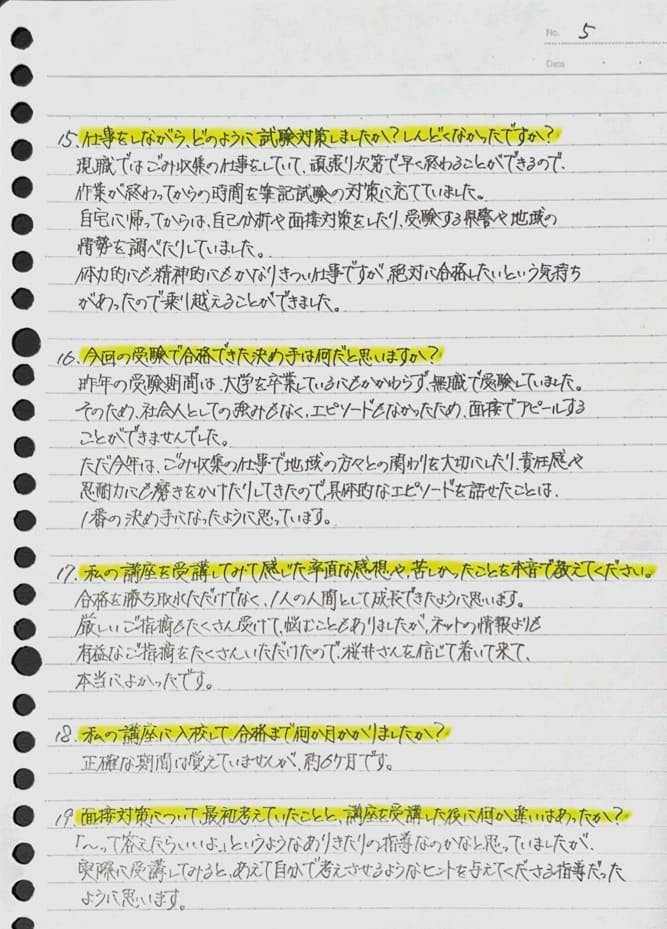 No. 5
Date
15. 仕事をしながら、どのように試験対策しましたか？しんどくなかったですか？
現職ではごみ収集の仕事をしていて、頑張り次第で早く終わることができるので、
作業が終わってからの時間を筆記試験の対策に充てていました。
自宅に帰ってからは、自己分析や面接対策をしたり、受験する県警や地域の
情勢を調べたりしていました。
体力的にも精神的にもかなりきつい仕事ですが、絶対に合格したいという気持ち
があったので乗り越えることができました。
16. 今回の受験で合格できた決め手は何だと思いますか？
昨年の受験期間は、大学を卒業しているにもかかわらず、無職で受験していました。
そのため、社会人としての強みもなく、エピソードもなかったため、面接でアピールする
ことができませんでした。
ただ今年は、ごみ収集の仕事で地域の方々との関わりを大切にしたり、責任感や
忍耐力にも磨きをかけたりしてきたので、具体的なエピソードを話せたことは、
1番の決め手になったように思っています。
17. 私の講座を受講してみて感じた率直な感想や、苦しかったことを本音で教えてください。
合格を勝ち取れただけでなく、1人の人間として成長できたように思います。
厳しいご指摘もたくさん受けて、悩むこともありましたが、ネットの情報よりも
有益なご指摘をたくさんいただけたので、桜井さんを信じて着いて来て、
本当によかったです。
18. 私の講座に入校して、合格まで何か月かかりましたか？
正確な期間は覚えていませんが、約6ケ月です。
19. 面接対策について、最初考えていたことと、講座を受講した後に何か違いはあったか？
「〜って答えたらいいよ。」というようなありきたりの指導なのかなと思っていましたが、
実際に受講してみると、あえて自分で考えさせるようなヒントを与えてくださる指導だった
ように思います。